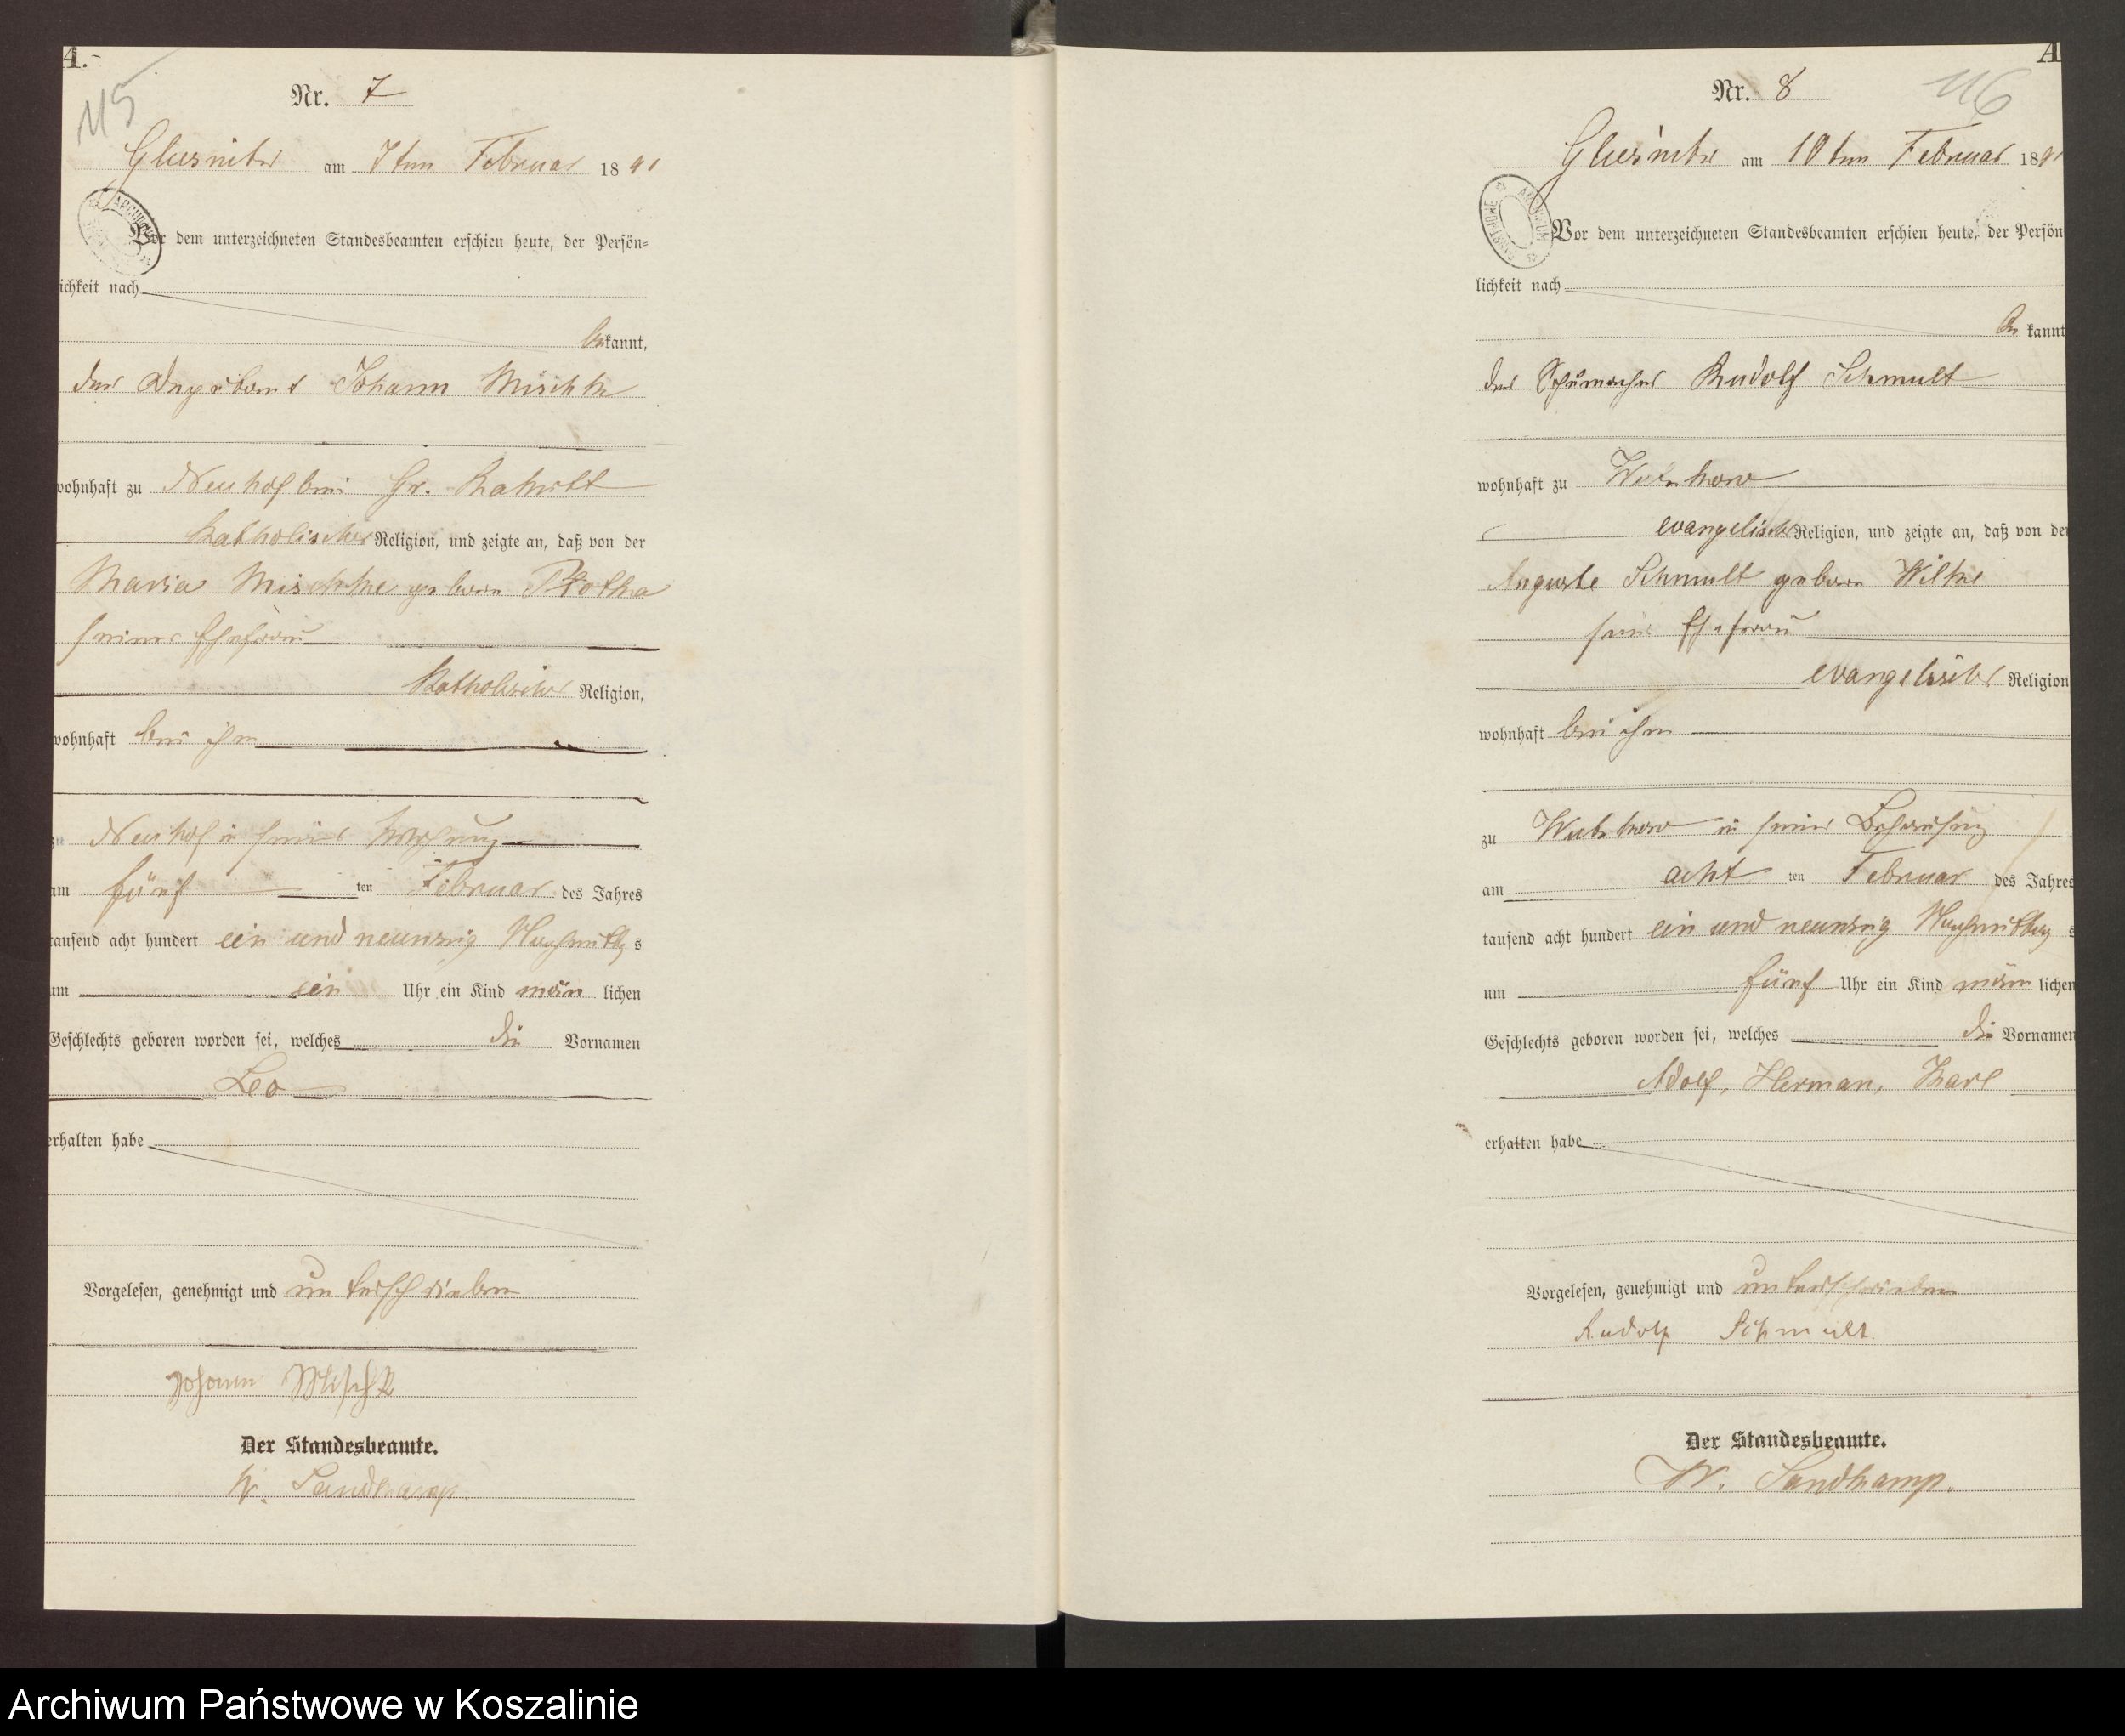 A.
115
Nr. 7
am 7ten Februar 1891
Vor dem unterzeichneten Standesbeamten erschien heute, der Persön=
lichkeit nach
bekannt,
der Johann Mischke
wohnhaft zu Neuhof bei Gr. Rakitt
katholischer Religion, und zeigte an, daß von der
Maria Mischke geboren
seiner Ehefrau
katholischer Religion,
wohnhaft bei ihm
zu Neuhof in seiner Wohnung
am fünf ten Februar des Jahres
tausend acht hundert ein und neunzig Nachmittags
um ein Uhr ein Kind män lichen
Geschlechts geboren worden sei, welches die Vornamen
Leo
erhalten habe
Vorgelesen, genehmigt und unterschrieben
Johann Mischk
Der Standesbeamte.
W. Sandkamp.
A
116
Nr. 8
am 10ten Februar 1891
Vor dem unterzeichneten Standesbeamten erschien heute, der Persön
lichkeit nach
be kannt
der Schumacher Rudolf Schmult
wohnhaft zu Wutzkow
evangelischer Religion, und zeigte an, daß von der
Auguste Schmult geboren Wilke
seine Ehefrau
evangelischer Religion
wohnhaft bei ihm
zu Wutzkow in seiner Behausung
am acht ten Februar des Jahres
tausend acht hundert ein und neunzig Nachmittags
um fünf Uhr ein Kind män lichen
Geschlechts geboren worden sei, welches die Vornamen
Adolf, Herman, Karl
erhalten habe
Vorgelesen, genehmigt und unterschrieben
Rudolf Schmult.
Der Standesbeamte.
W. Sandkamp.
Archiwum Państwowe w Koszalinie